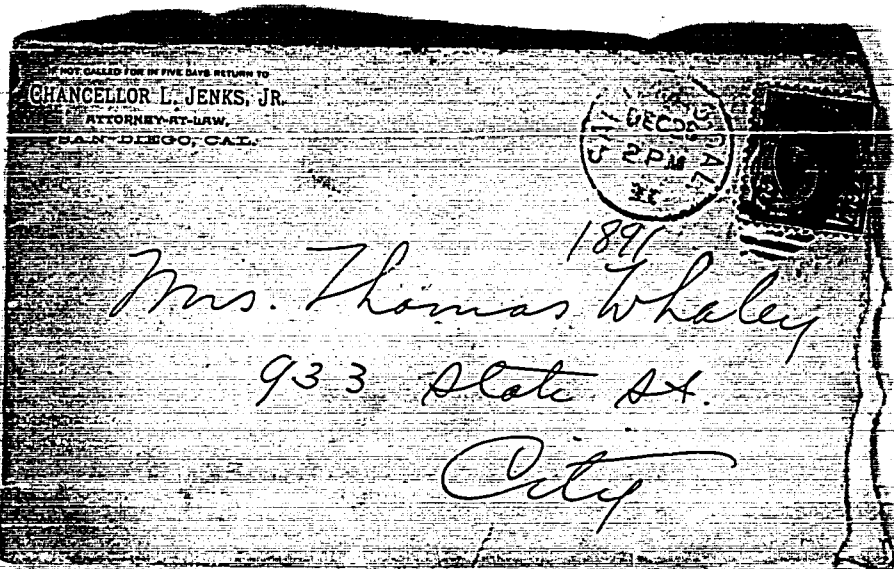 IF NOT CALLED FOR IN FIVE DAYS RETURN TO
CHANCELLOR L. JENKS, JR.
ATTORNEY-AT-LAW,
SAN DIEGO, CAL.
DEC
2 PM
CAL.
1891
Mrs. Thomas Whaley
933 State St.
City